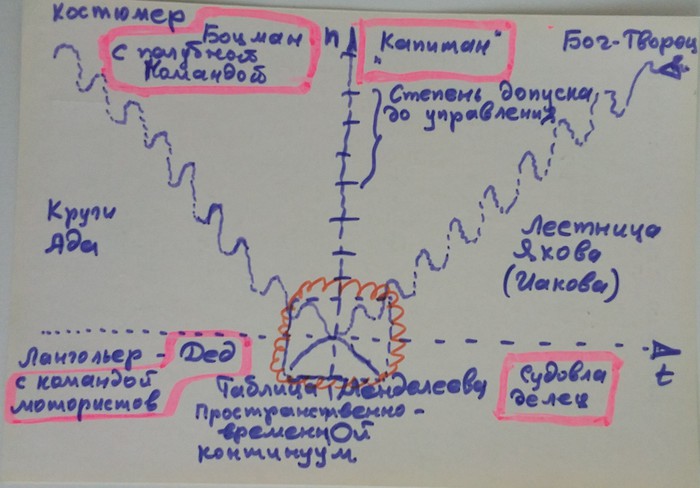 Костюмер
Боцман
с палубной
командой
n
"Капитан"
Бог-Творец
Степень допуска
до управления
Круги
Ада
Лестница
Яхова
(Иакова)
Лангольер - Дед
с командой
мотористов
Таблица Менделеева
Пространственно-
временной
континуум
Судовла
делец
t